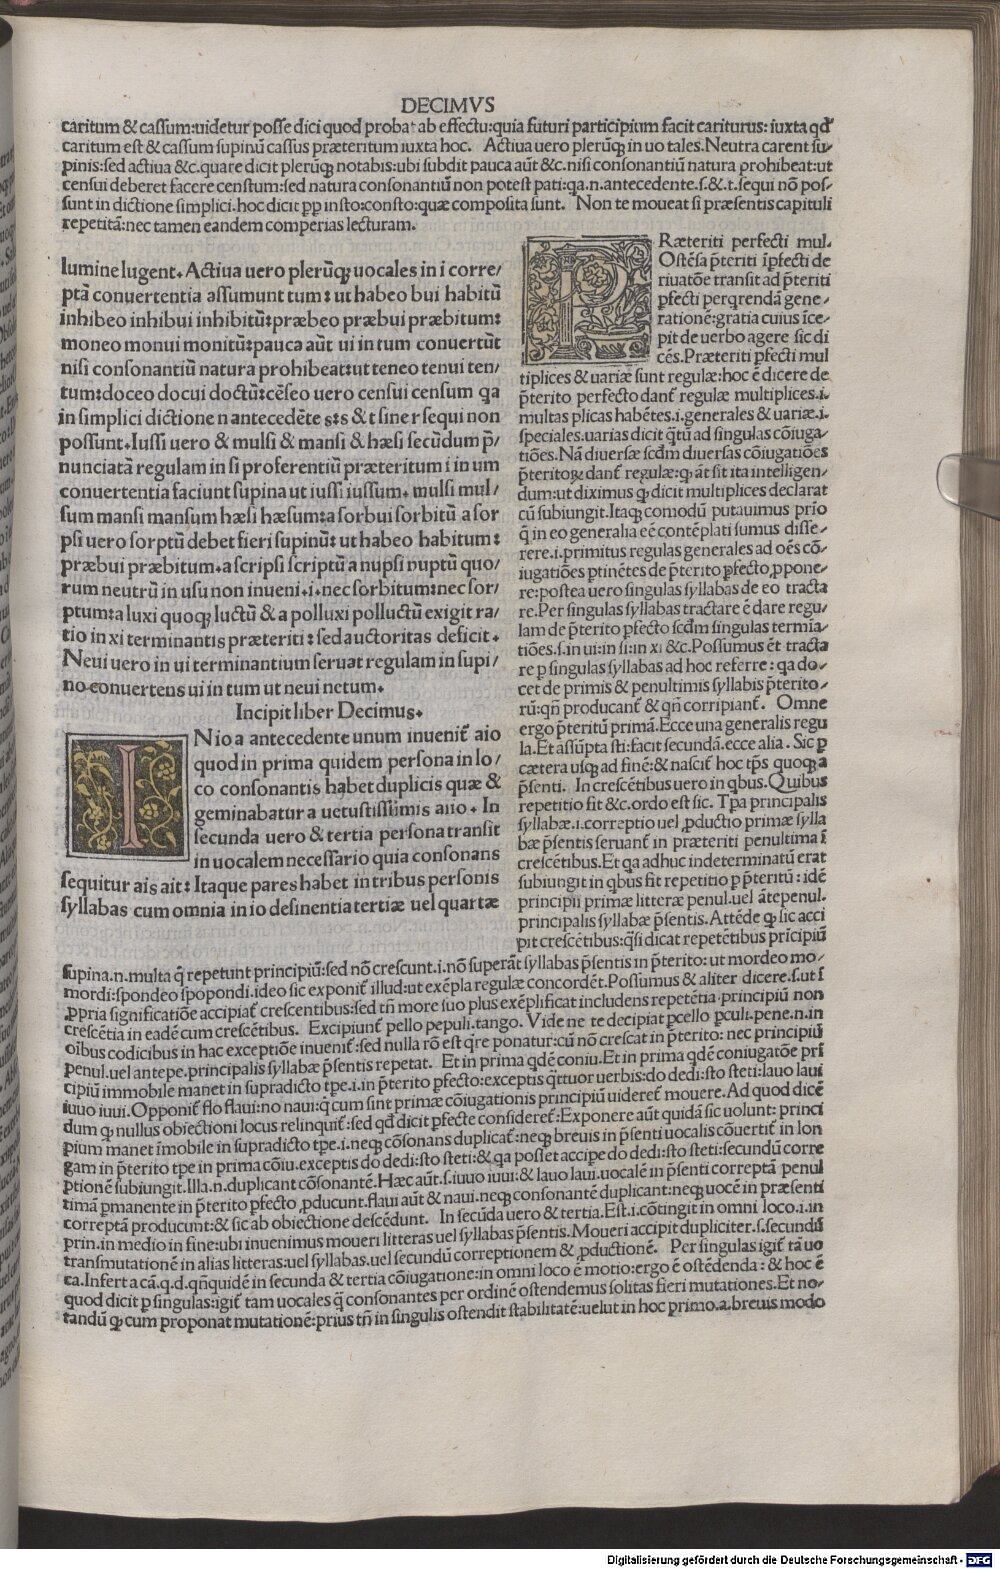 DECIMVS
caritum & cassum:uidetur posse dici quod probat ab effectu:quia futuri participium facit cariturus: iuxta qđ
caritum est & cassum supinū cassus præteritum iuxta hoc. Actiua uero plerūq; in uo tales. Neutra carent su-
pinis:sed actiua &c.quare dicit plerūq; notabis:ubi subdit pauca aūt &c.nisi consonantiū natura prohibeat:ut
censui deberet facere censtum:sed natura consonantiū non potest pati:qa.n.antecedente.s.&.t.sequi nō pos-
sunt in dictione simplici.hoc dicit pp insto:consto:quæ composita sunt. Non te moueat si præsentis capituli
repetitā:nec tamen eandem comperias lecturam.
lumine lugent. Actiua uero plerūq; uocales in i corre/
ptā conuertentia assumunt tum: ut habeo bui habitū
inhibeo inhibui inhibitū:præbeo præbui præbitum:
moneo monui monitū:pauca aūt ui in tum conuertūt
nisi consonantiū natura prohibeat:ut teneo tenui ten/
tum:doceo docui doctū:cēseo uero censui censum qa
in simplici dictione n antecedēte s:s & t sine r sequi non
possunt. Iussi uero & mulsi & mansi & hæsi secūdum p̄/
nunciatā regulam in si proferentiū præteritum i in um
conuertentia faciunt supina ut iussi iussum. mulsi mul/
sum mansi mansum hæsi hæsum:a sorbui sorbitū a sor
psi uero sorptū debet fieri supinū: ut habeo habitum:
præbui præbitum. a scripsi scriptū a nupsi nuptū quo/
rum neutrū in usu non inueni.i.nec sorbitum:nec sor/
ptum:a luxi quoq; luctū & a polluxi polluctū exigit ra/
tio in xi terminantis præteriti: sed auctoritas deficit.
Neui uero in ui terminantium seruat regulam in supi/
no conuertens ui in tum ut neui netum.
Incipit liber Decimus.
I Nio a antecedente unum inuenit̄ aio
quod in prima quidem persona in lo/
co consonantis habet duplicis quæ &
geminabatur a uetustissimis aiio. In
secunda uero & tertia persona transit
in uocalem necessario quia consonans
sequitur ais ait: Itaque pares habet in tribus personis
syllabas cum omnia in io desinentia tertiæ uel quartæ
P Ræteriti perfecti mul.
Ostēsa p̄teriti īpfecti de
riuatōe transit ad p̄teriti
pfecti perqrendā gene-
rationē:gratia cuius īce-
pit de uerbo agere sic di
cēs.Præteriti pfecti mul
tiplices & uariæ sunt regulæ:hoc ē dicere de
p̄terito perfecto dant̄ regulæ multiplices.i.
multas plicas habētes.i.generales & uariæ.i.
speciales.uarias dicit q̄tū ad singulas cōiuga-
tiões. Nā diuersæ scđm diuersas cōiugatiões
p̄teritoꝝ dant̄ regulæ:q; āt sit ita intelligen-
dum:ut diximus q; dicit multiplices declarat
cū subiungit.Itaq; comodū putauimus prīo
q̄ in eo generalia eē contēplati sumus disse-
rere.i.primitus regulas generales ad oēs cō-
iugatiões ptinētes de p̄terito pfecto,ppone-
re:postea uero singulas syllabas de eo tracta
re.Per singulas syllabas tractare ē dare regu-
lam de p̄terito pfecto scđm singulas termīa-
tiões.s.in ui:in si:in xi &c.Possumus ēt tracta
re p singulas syllabas ad hoc referre: qa do-
cet de primis & penultimis syllabis p̄terito-
rū:qn̄ producant̄ & qn̄ corripiant̄. Omne
ergo p̄teritū primā.Ecce una generalis regu
la.Et assūpta sti:facit secundā.ecce alia. Sic p
cætera usq; ad finē:& nascit̄ hoc tp̄s quoq; a
p̄senti. In crescētibus uero in qbus.Quibus
repetitio fit &c.ordo est sic. Tpa principalis
syllabæ.i.correptio uel ,pductio primæ sylla
bæ p̄sentis seruant̄ in præteriti penultima ī
crescētibus.Et qa adhuc indeterminatū erat
subiungit in qbus fit repetitio p p̄teritū: idē
principii primæ litteræ penul.uel ātepenul.
principalis syllabæ p̄sentis.Attēde q; sic acci
pit crescētibus:q̄si dicat repetētibus prīcipiū
supina.n.multa q̄ repetunt principiū:sed nō crescunt.i.nō superāt syllabas p̄sentis in p̄terito: ut mordeo mo-
mordi:spondeo spopondi.ideo sic exponit̄ illud:ut exēpla regulæ concordēt.Possumus & aliter dicere.s.ut ī
,ppria significatiōe accipiat̄ crescentibus:sed tn̄ more suo plus exēplificat includens repetētia.principiū non
crescētia in eadē cum crescētibus. Excipiunt̄ pello pepuli.tango. Vide ne te decipiat pcello pculi.pene.n.in
oībus codicibus in hac exceptiōe inuenit̄:sed nulla rō est q̄re ponatur:cū nō crescat in p̄terito: nec principiū
penul.uel antepe.principalis syllabæ p̄sentis repetat. Et in prima qdē coniu.Et in prima qdē coniugatōe prī
cipiū immobile manet in supradicto tpe.i.in p̄terito pfecto:exceptis q̄ttuor uerbis:do dedi:sto steti:lauo laui
iuuo iuui.Opponit̄ flo flaui:no naui:q̄ cum sint primæ cōiugationis principiū uideret̄ mouere.Ad quod dicē
dum q; nullus obiectioni locus relinquit̄:sed qđ dicit pfecte consideret̄:Exponere aūt quidā sic uolunt: princi
pium manet īmobile in supradicto tpe.i.neq; cōsonans duplicat̄:neq; breuis in p̄senti uocalis cōuertit̄ in lon
gam in p̄terito tpe in prima cōiu.exceptis do dedi:sto steti:& qa posset accipe do dedi:sto steti:secundū corre
ptionē subiungit.Illa.n.duplicant cōsonantē.Hæc aūt.s.iuuo iuui:& lauo laui.uocalē in p̄senti correptā penul
timā pmanente in p̄terito pfecto ,pducunt.flaui aūt & naui.neq; consonantē duplicant:neq; uocē in præsenti
correptā producunt:& sic ab obiectione descēdunt. In secūda uero & tertia.Est.i.cōtingit in omni loco.i.in
prin.in medio in fine:ubi inuenimus moueri litteras uel syllabas p̄sentis.Moueri accipit dupliciter.s.secundū
transmutationē in alias litteras:uel syllabas.uel secundū correptionem & ,pductionē. Per singulas igit̄ tā uo
ca.Infert a cā.q.d.qn̄quidē in secunda & tertia cōiugatione:in omni loco ē motio:ergo ē ostēdenda: & hoc ē
quod dicit p singulas:igit̄ tam uocales q̄ consonantes per ordinē ostendemus solitas fieri mutationes.Et no-
tandū q; cum proponat mutationē:prius tn̄ in singulis ostendit stabilitatē:uelut in hoc primo.a.breuis modo
Digitalisierung gefördert durch die Deutsche Forschungsgemeinschaft - DFG